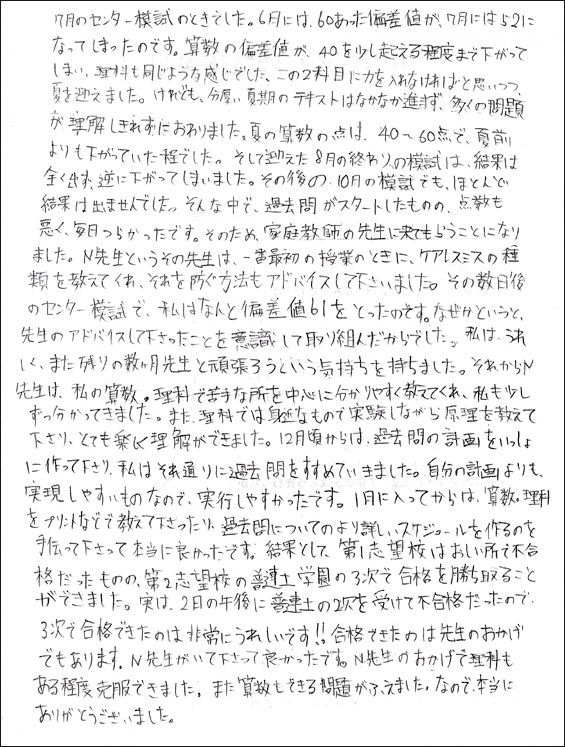 7月のセンター模試のときでした。6月には、60あった偏差値が、7月には52に
なってしまったのです。算数の偏差値が、40を少し超える程度まで下がって
しまい、理科も同じような感じでした、この2科目に力を入れなければと思いつつ、
夏を迎えました。けれども、分厚い夏期のテキストはなかなか進まず、多くの問題
が理解しきれずにおわりました。夏の算数の点は、40〜60点で、夏前
よりも下がっていた程でした。そして迎えた8月の終わりの模試は、結果は
全く出ず、逆に下がってしまいました。その後の、10月の模試でも、ほとんど
結果は出ませんでした。そんな中で、過去問がスタートしたものの、点数も
悪く、毎日つらかったです。そのため、家庭教師の先生に来てもらうことになり
ました。N先生というその先生は、一番最初の授業のときに、ケアレスミスの種
類を教えてくれ、それを防ぐ方法もアドバイスして下さいました。その数日後
のセンター模試で、私はなんと偏差値61をとったのです。なぜかというと、
先生のアドバイスして下さったことを意識して取り組んだからでした。私は、うれ
しく、また残りの数ヶ月先生と頑張ろうという気持ちを持ちました。それからN
先生は、私の算数。理科で苦手な所を中心に分かりやすく教えてくれ、私も少し
ずつ分かってきました。また、理科では身近なもので実験しながら原理を教えて
下さり、とても楽しく理解ができました。12月頃からは、過去問の計画をいっしょ
に作って下さり、私はそれ通りに過去問をすすめていきました。自分の計画よりも、
実現しやすいものなので、実行しやすかったです。1月に入ってからは、算数。理科
をプリントなどで教えて下さったり、過去問についてのより詳しいスケジュールを作るのを
手伝って下さって本当に良かったです。結果として、第1志望校はおしい所で不合
格だったものの、第2志望校の 学園の3次で合格を勝ち取ること
ができました。実は、2日の午後に の2次を受けて不合格だったので、
3次で合格できたのは非常にうれしいです!!合格できたのは先生のおかげ
でもあります。N先生がいて下さって良かったです。N先生のおかげで理科も
ある程度克服できました。また算数もできる問題がふえました。なので、本当に
ありがとうございました。